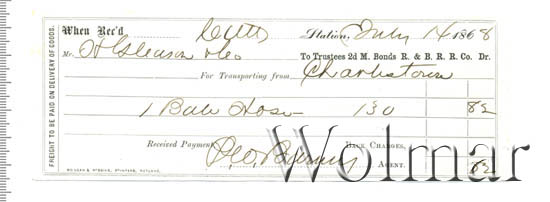 When Rec'd Cutts Station, July 14 1868
Mr. H Gleason & Co To Trustees 2d M. Bonds R. & B. R. R. Co. Dr.
For Transporting from Charlestown
1 Bale Hose 130 82
Received Payment, BACK CHARGES,
AGENT. 82
FREIGHT TO BE PAID ON DELIVERY OF GOODS.
Wolmar